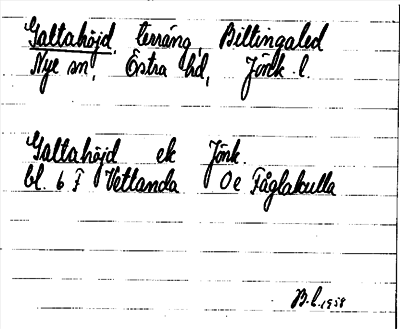 Galtahöjd, terräng, Biltingaled
Nye sn, Östra hd, Jönk. l.
Galtahöjd ek Jönk.
bl. 6 F Vetlanda Oe Fåglakulla
B.L. 1958